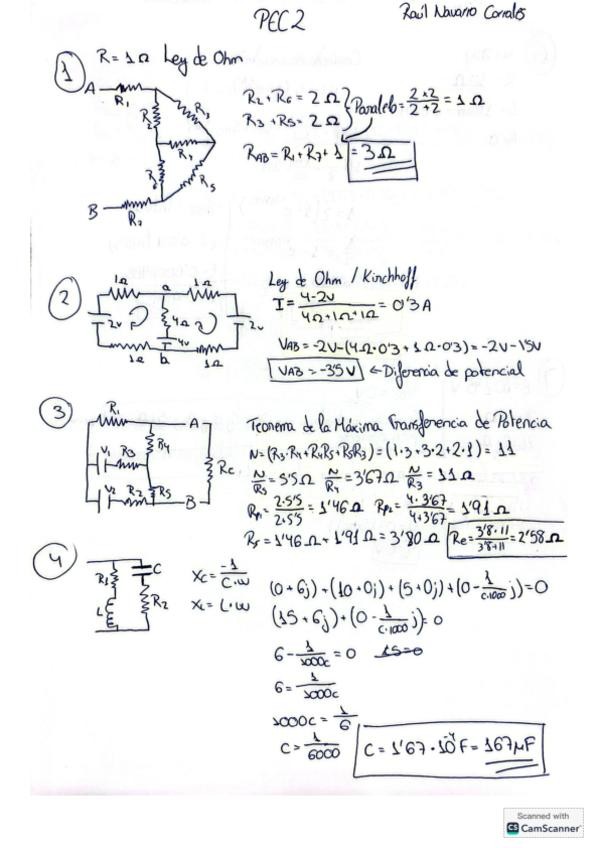 PEC 2
Raúl Navarro Corrales
1
R = 1Ω Ley de Ohm
A
R1
R2
R3
R4
R5
B
R7
R2 + R6 = 2 Ω
R3 + R5 = 2 Ω
Paralelo = 2*2/2+2 = 1 Ω
RAB = R1 + R7 + 1 = 3 Ω
2
Ley de Ohm / Kirchhoff
1Ω a 1Ω
2v 4Ω 2v
4v
1Ω b 1Ω
I = 4-2v / 4Ω+1Ω+1Ω = 0'3 A
VAB = -2v-(4Ω·0'3 + 1Ω·0'3) = -2v - 1'5v
VAB = -3'5 v ← Diferencia de potencial
3
R1 A
R4
V1 R3 Rc
V2 R2 R5 B
Teorema de la Máxima Transferencia de Potencia
N = (R3·R4+R4R5+R5R3) = (1·3+3·2+2·1) = 11
N/R5 = 5'5Ω N/R4 = 3'67Ω N/R3 = 11Ω
Rp1 = 2·5'5/2+5'5 = 1'46Ω Rp2 = 4·3'67/4+3'67 = 1'91Ω
Rs = 1'46Ω + 1'91Ω = 3'80Ω Re = 3'8·11/3'8+11 = 2'58Ω
4
R1 C
L R2
XC = -1/C·w
XL = L·w
(0+6j)+(10+0j)+(5+0j)+(0-1/C·1000 j) = 0
(15+6j)+(0-1/C·1000 j) = 0
6 - 1/1000c = 0 15=0
6 = 1/1000c
1000C = 1/6
C = 1/6000
C = 1'67·10⁻⁴F = 167μF
Scanned with
CS CamScanner